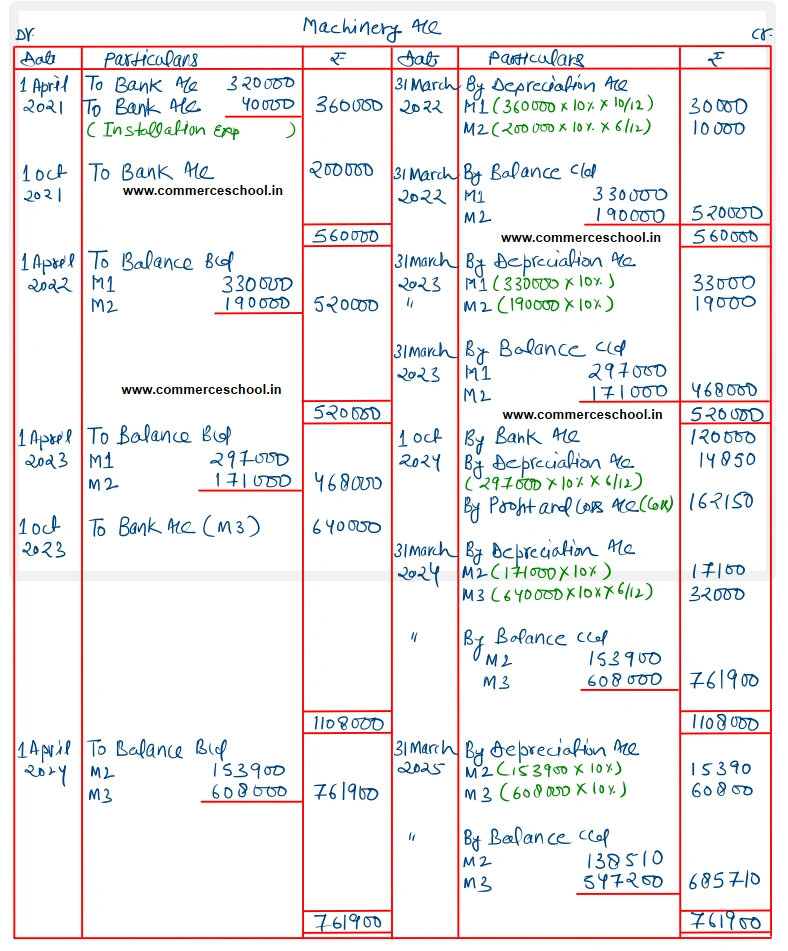 Machinery A/c
Dr. Cr.
Date Particulars ₹ Date Particulars ₹
1 April To Bank A/c 320000 31 March By Depreciation A/c
2021 To Bank A/c 40000 360000 2022 M1 (360000 x 10% x 10/12) 30000
(Installation Exp ) M2 (200000 x 10% x 6/12) 10000
1 Oct To Bank A/c 200000 31 March By Balance c/d
2021 www.commerceschool.in 2022 M1 330000
M2 190000 520000
560000 www.commerceschool.in 560000
1 April To Balance B/d 31 March By Depreciation A/c
2022 M1 330000 2023 M1 (330000 x 10%) 33000
M2 190000 520000 " M2 (190000 x 10%) 19000
31 March By Balance c/d
2023 M1 297000
www.commerceschool.in M2 171000 468000
520000 www.commerceschool.in 520000
1 April To Balance B/d 1 Oct By Bank A/c 120000
2023 M1 297000 2024 By Depreciation A/c 14850
M2 171000 468000 (297000 x 10% x 6/12)
By Profit and Loss A/c (Loss) 162150
1 Oct To Bank A/c (M3) 640000
2023 31 March By Depreciation A/c
2024 M2 (171000 x 10%) 17100
M3 (640000 x 10% x 6/12) 32000
" By Balance c/d
M2 153900
M3 608000 761900
1108000 1108000
1 April To Balance B/d 31 March By Depreciation A/c
2024 M2 153900 2025 M2 (153900 x 10%) 15390
M3 608000 761900 M3 (608000 x 10%) 60800
" By Balance c/d
M2 138510
M3 547200 685710
761900 761900